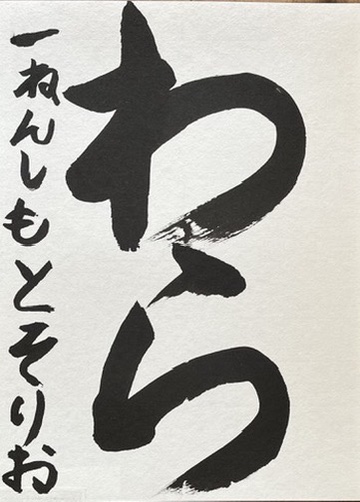 わら
一ねんしもとそりお